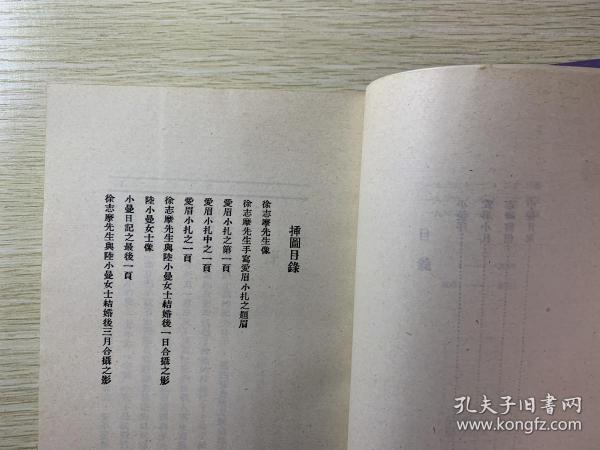 插圖目錄
徐志摩先生像
徐志摩先生手寫愛眉小扎之題眉
愛眉小扎之第一頁
愛眉小扎中之一頁
愛眉小扎之一頁
徐志摩先生與陸小曼女士結婚後一日合攝之影
陸小曼女士像
小曼日記之最後一頁
徐志摩先生與陸小曼女士結婚後三月合攝之影
目錄
孔夫子旧书网
www.kongfz.com